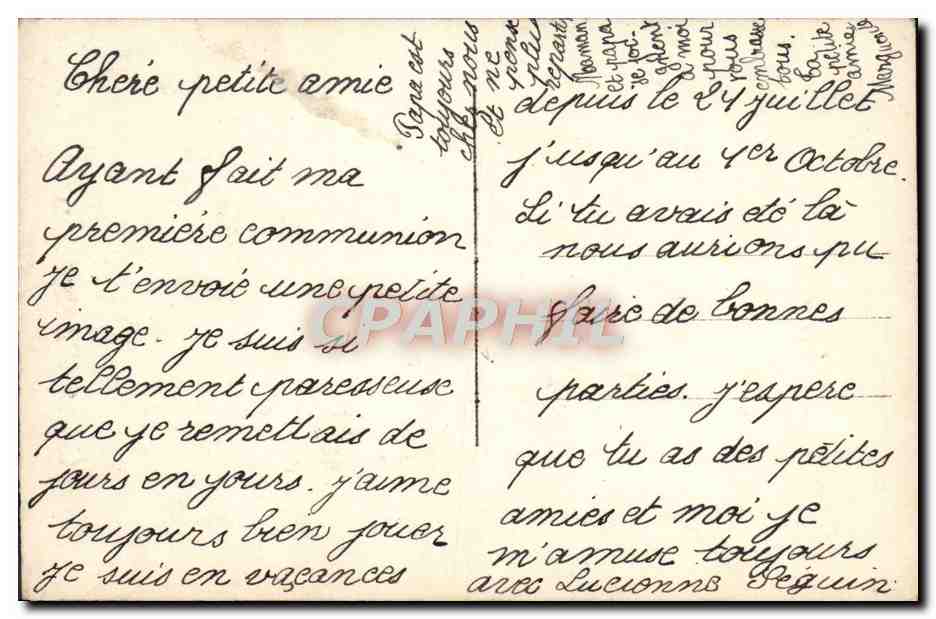 Cheré petite amie
Ayant fait ma
première communion
je t'envoie une petite
image. je suis si
tellement paresseuse
que je remettais de
jours en jours. j'aime
toujours bien jouer
je suis en vaçances
depuis le 21 juillet
j'usqu'au 1er Octobre.
Si tu avais été là
nous aurions pu
faire de bonnes
parties. j'espere
que tu as des pétites
amies et moi je
m'amuse toujours
avec Lucienne Séguin
Papa est
toujours
chez nous
et ne
pense
plus
repartir
Maman
et papa
se joi-
gnent
à moi
pour
vous
embrasser
tous.
Ta petite
amie
CPAPHIL